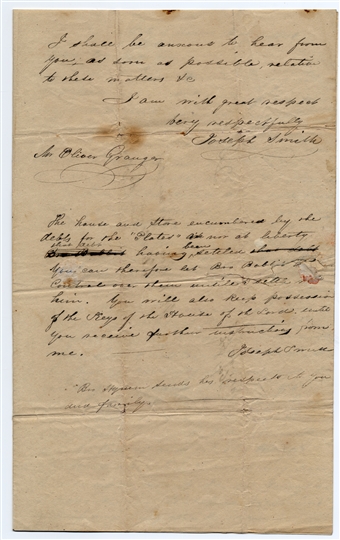 I shall be anxous to hear from
you, as soon as possible, relation
to these matters &c
I am with great respect
very respectfully
Joseph Smith
Mr Oliver Granger
The house and Store encumbered by the
debts for the Plates are not at liberty
having been settled
You can therefore let Bro
Control over them untill I settle
him. You will also keep possession
of the Keys of the House of the Lord, until
you receive further instructions from
me.
Joseph Smith
Bro Hyrum sends his respects to you
and family.